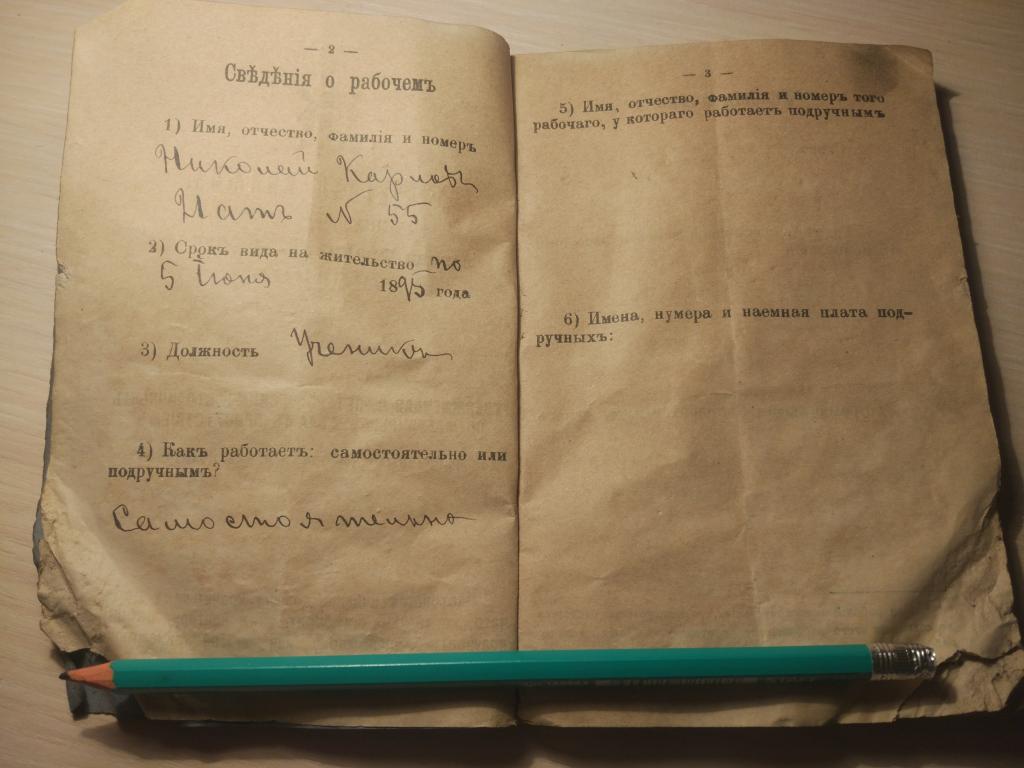 — 2 —
Свѣдѣнія о рабочемъ
1) Имя, отчество, фамилія и номеръ
Николай Карловъ
Натъ N 55
2) Срокъ вида на жительство по
5 Iюня 1895 года
3) Должность Ученикъ
4) Какъ работаетъ: самостоятельно или
подручнымъ?
Самостоятельно
— 3 —
5) Имя, отчество, фамилія и номеръ того
рабочаго, у котораго работаетъ подручнымъ
6) Имена, нумера и наемная плата под-
ручныхъ: